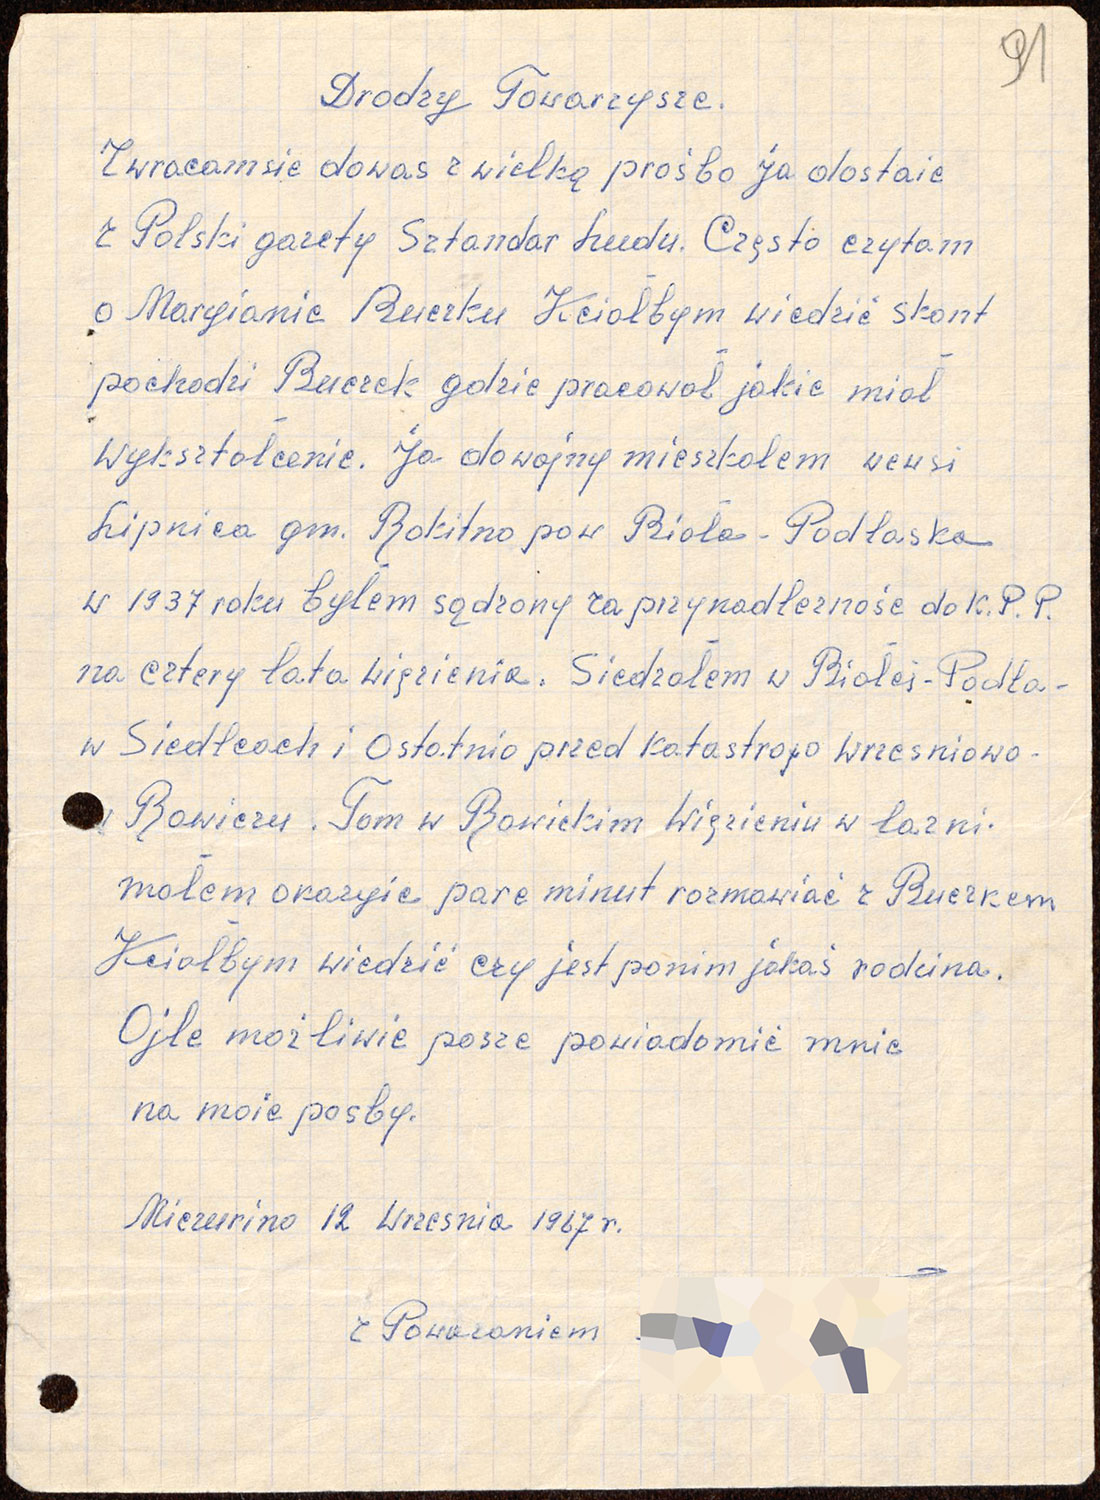 91
Drodzy Towarzysze.
Zwracamsie dowas z wielką prośbo Ja dostaie
z Polski gazety Sztandar Ludu. Często czytam
o Margianie Buczku Kciołbym wiedzić skont
pochodzi Buczek gdzie pracowoł jakie mioł
wykształcenie. Ja dowojny mieszkolem wewsi
Lipnica gm. Rokitno pow Bioła-Podłaska
w 1937 roku byłem sądzony za przynadłezność do K.P.P.
na cztery łata więzienia. Siedzołem w Białej-Podła-
w Siedłcach i Ostatnio przed katastrofo wrzesniowo-
w Rawiczu. Tam w Rawickim Więzieniu w łazni.
małem okazyie pare minut rozmawiać z Buczkem
Kciołbym wiedzić czy jest ponim jakaś rodzina.
Ojle możliwie posze powiadomić mnie
na moie posby.
Miczurino 12 Wrzesnia 1967 r.
z Powozaniem